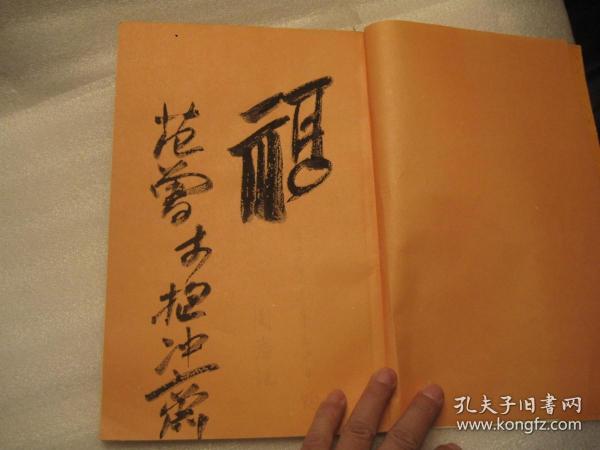 福
范曾於抱冲齋
孔夫子旧書网
www.kongfz.com